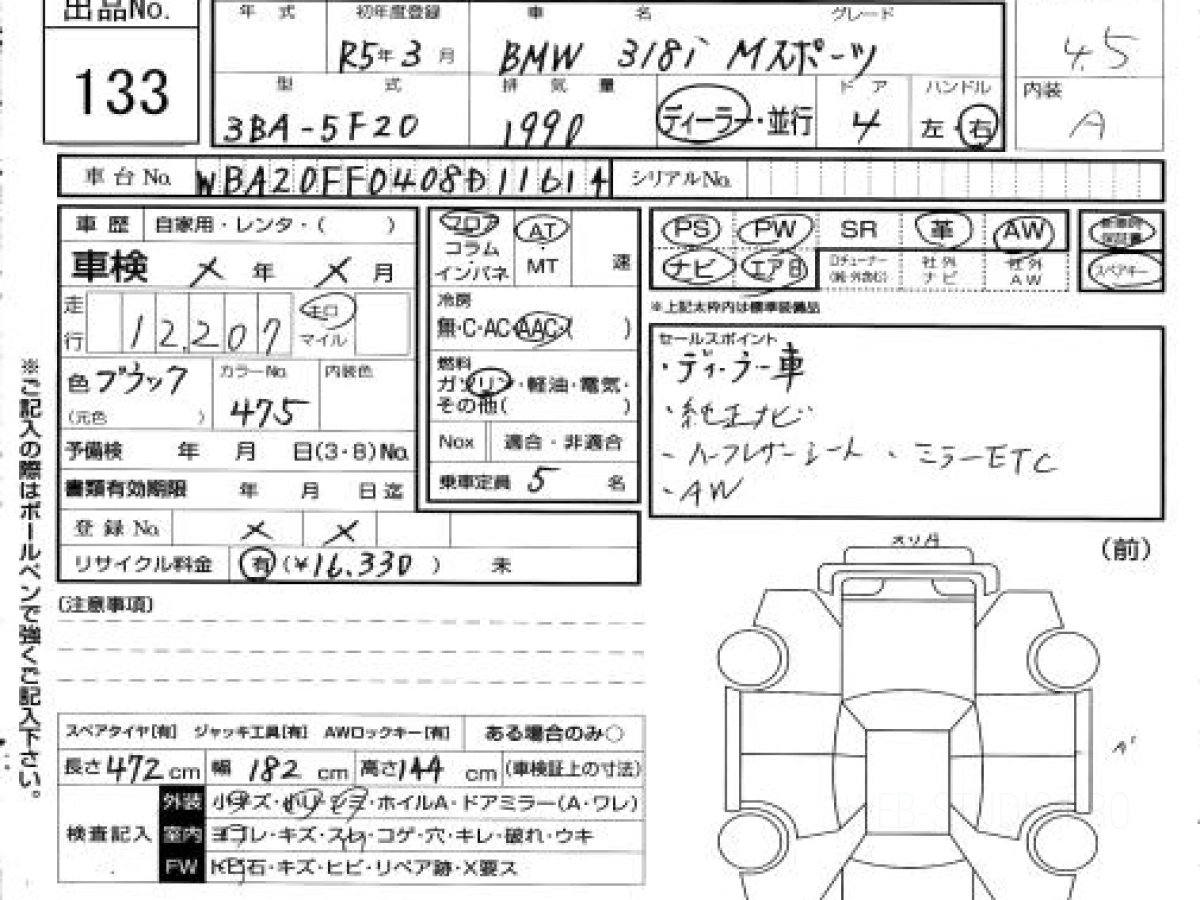 出品No.
133
年 式
初年度登録
車 名
グレード
R5年3月
BMW 318i Mスポーツ
4.5
型 式
排 気 量
ド ア
ハンドル
内装
3BA-5F20
1990
ディーラー・並行
4
左・右
A
車台No.
WBA20FF0408D11614
シリアルNo.
車 歴
自家用・レンタ・( )
フロア
コラム
インパネ
AT
・
MT
速
PS
PW
SR
革
AW
保証書
車検
× 年 × 月
ナビ
エア B
社外
ナビ
社外
AW
スペアキー
走行
12,207
キロ
マイル
冷房
無・C・AC・AAC・( )
※上記太枠内は標準装備品
色 ブラック
(元色 )
カラーNo.
475
内装色
燃料
ガソリン・軽油・電気・
その他( )
セールスポイント
・ディーラー車
・純正ナビ
・ハーフレザーシート 、ミラーETC
・AW
予備検 年 月 日(3・8)No.
Nox
適合・非適合
書類有効期限 年 月 日迄
乗車定員 5 名
登録No.
× ×
リサイクル料金
有 (¥16.330 ) 未
※ご記入の際はボールペンで強くご記入下さい。
(注意事項)
(前)
スペアタイヤ[有] ジャッキ工具[有] AWロックキー[有]
ある場合のみ○
長さ472cm
幅 182 cm
高さ144 cm
(車検証上の寸法)
検査記入
外装
小キズ・ホイルA・ドアミラー(A・ワレ)
室内
ヨゴレ・キズ・スレ・コゲ・穴・キレ・破れ・ウキ
FW
トビ石・キズ・ヒビ・リペア跡・X要ス